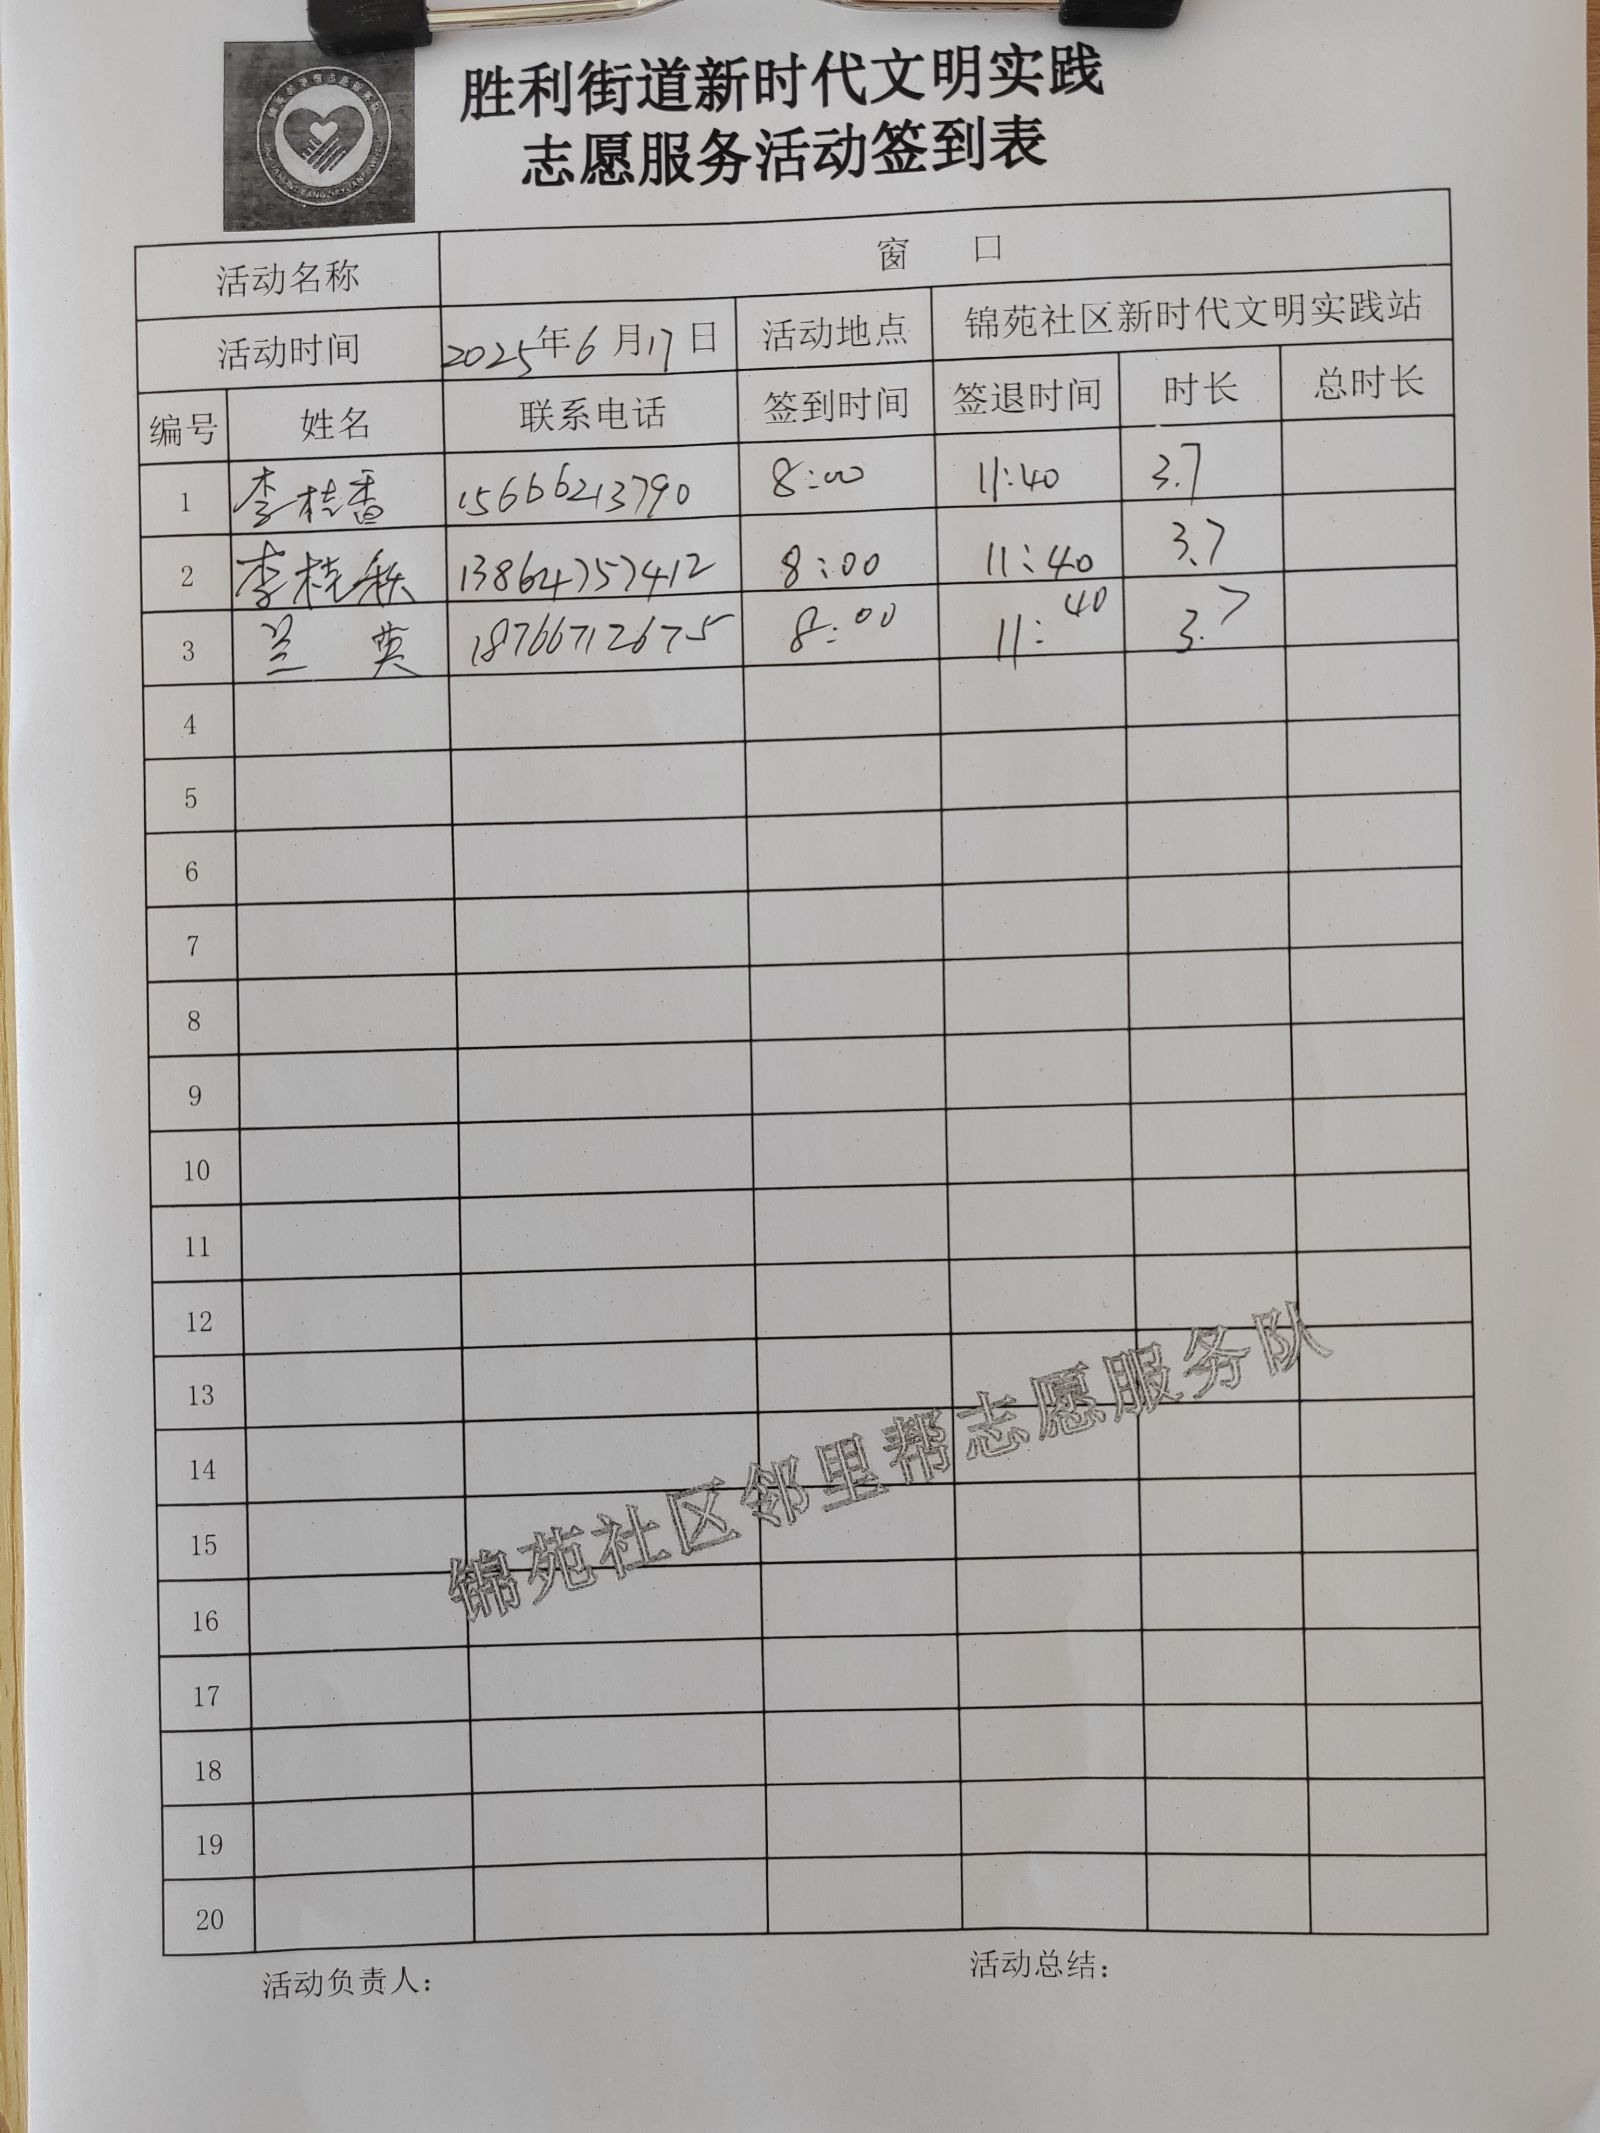 胜利街道新时代文明实践
志愿服务活动签到表
活动名称 窗 口
活动时间 2025年6月17日 活动地点 锦苑社区新时代文明实践站
编号 姓名 联系电话 签到时间 签退时间 时长 总时长
1 李桂香 15666213790 8:00 11:40 3.7
2 李桂秋 13864757412 8:00 11:40 3.7
3 兰英 18766712675 8:00 11:40 3.7
4
5
6
7
8
9
10
11
12
13
14
15
16
17
18
19
20
锦苑社区邻里帮志愿服务队
活动负责人: 活动总结: